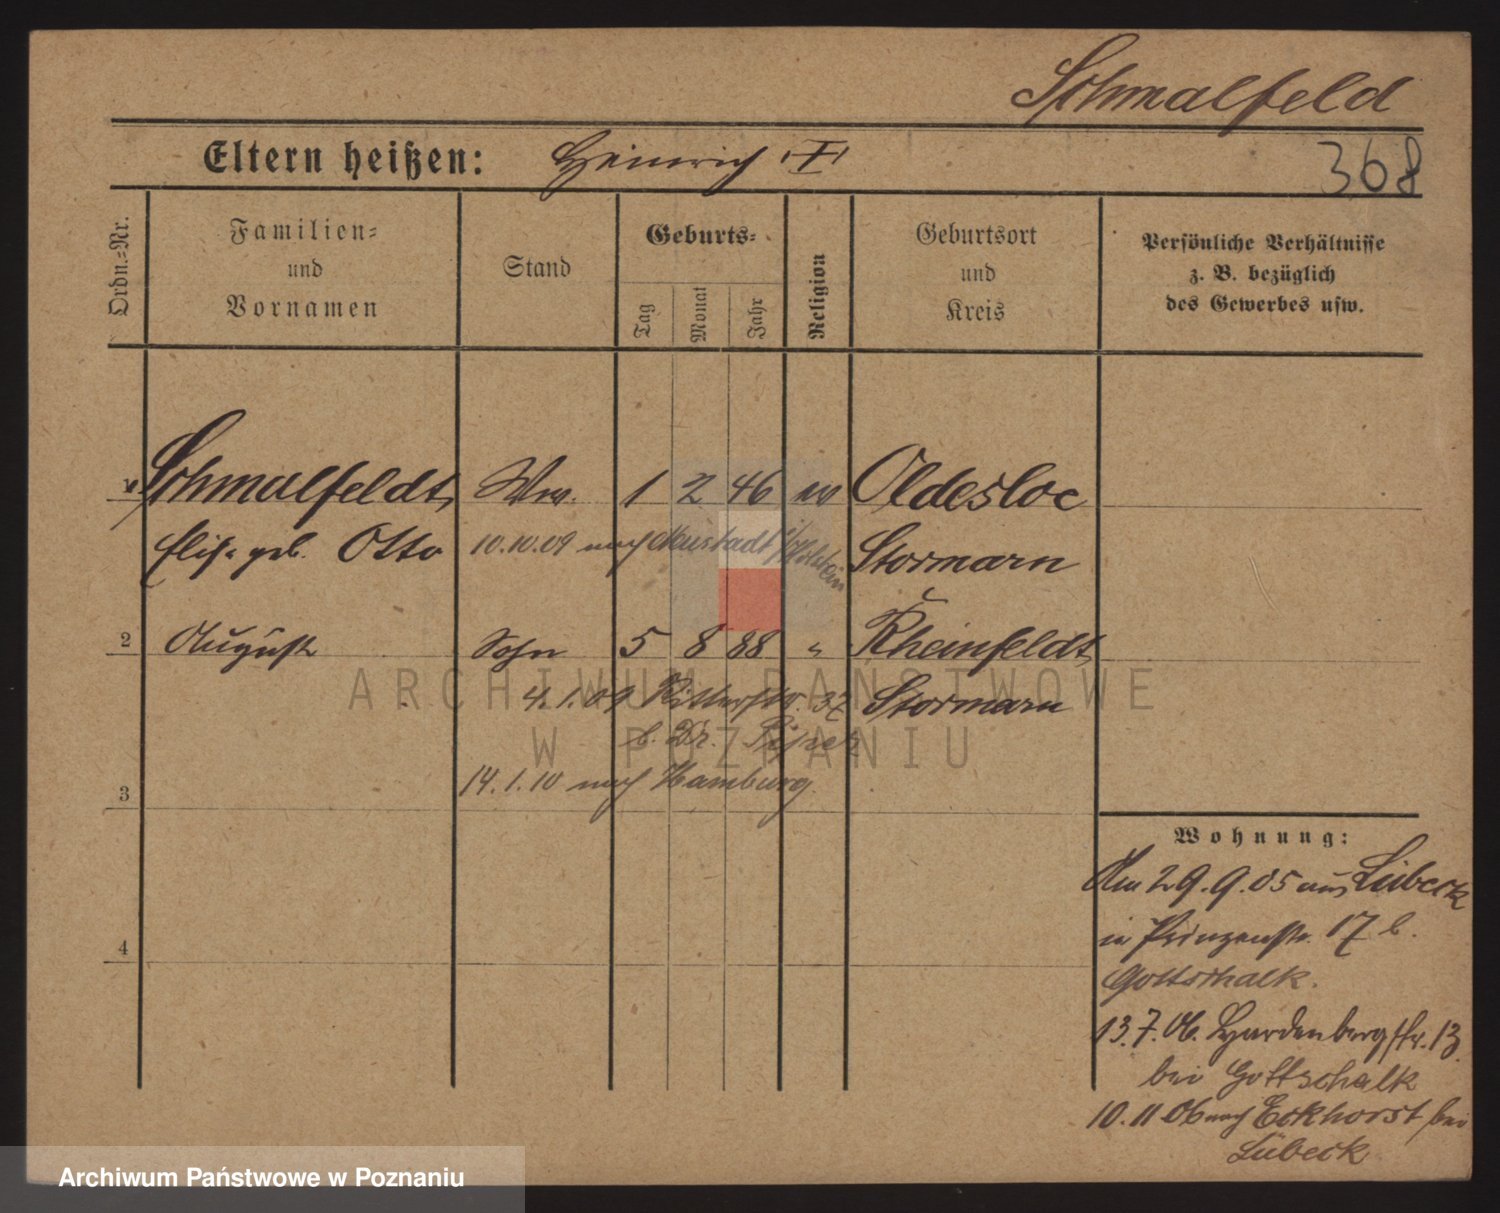 Schmalfeld
Eltern heißen: Heinrich (†)
368
Ordn.-Nr.
Familien-
und
Vornamen
Stand
Geburts-
Tag
Monat
Jahr
Religion
Geburtsort
und
Kreis
Persönliche Verhältnisse
z. B. bezüglich
des Gewerbes usw.
1 Schmalfeldt, Ww. 1 2 46 ev Oldesloe
Elise geb. Otto 10.10.09 nach Neustadt i/Holstein Stormarn
2 August Sohn 5 8 88 " Rheinfeldt,
4.1.09 Ritterstr. 37 Stormarn
b. Dr. Piper
14.1.10 nach Hamburg.
3
4
Wohnung:
Am 29.9.05 aus Lübeck
in Prinzenstr. 17 b.
Gottschalk.
13.7.06. Hardenbergstr. 13.
bei Gottschalk
10.11.06 nach Eckhorst bei
Lübeck
ARCHIWUM PAŃSTWOWE
W POZNANIU
Archiwum Państwowe w Poznaniu